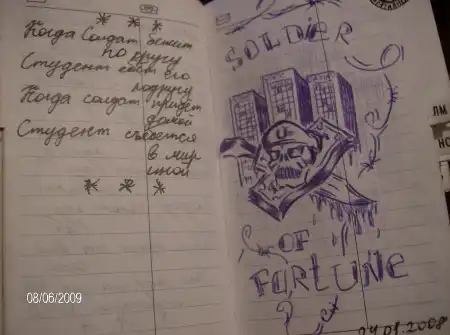 * * *
Когда Солдат бежит
по кругу
Студент
его
подругу
Когда солдат придет
домой
Студент съебется
в мир
иной
* * *
SOLDER
OF
FORTUNE
24.01.2008
ЛМ
НО
08/06/2009